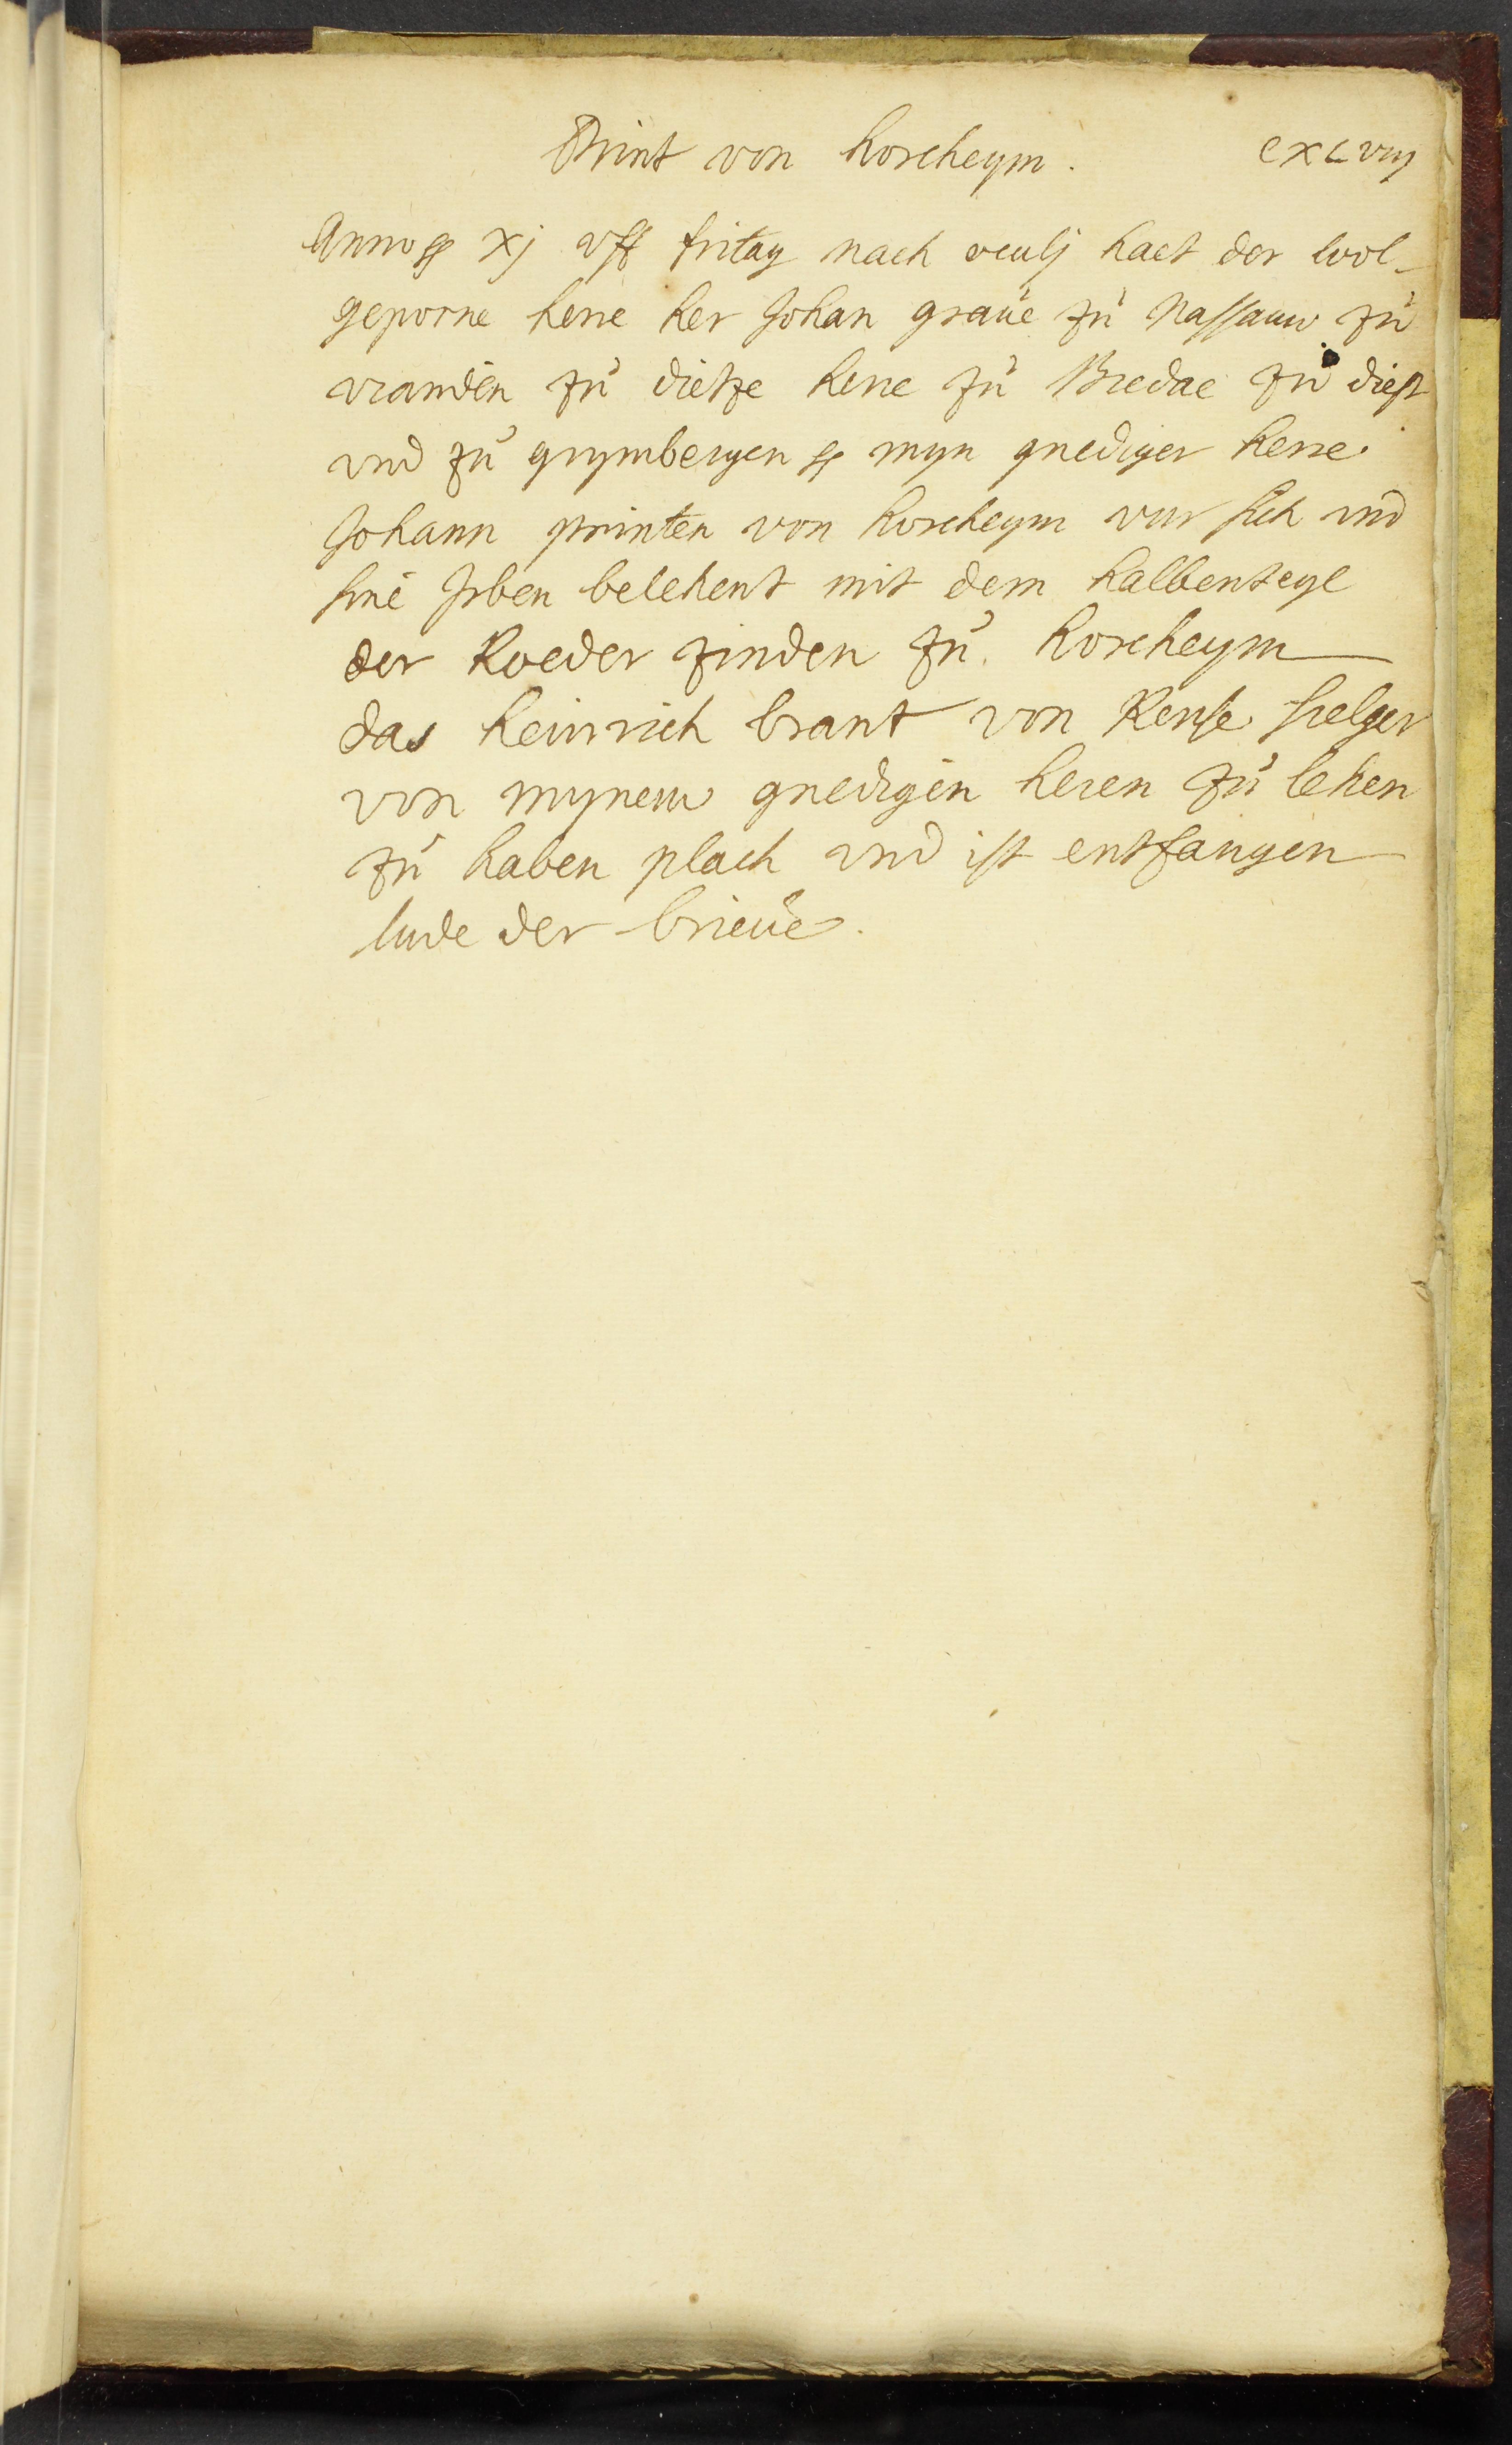 Print von horcheym. cxlviij
Anno etc xj vff fritag nach oculj haet der wol-
geporne herre her Johan graue zu Nassauw zu
vianden zu dietze herre zu Bredae zu diest
vnd zu grymbergen etc myn gnediger herre
Johann printen von horcheym vur sich vnd
sine Erben belehent mit dem halbenteyl
der Roeder zinden zu horcheym
das heinrich brant von Rense selger
von mynem gnedigen heren zu lehen
zu haben plach vnd ist entfangen
lude der brieue.